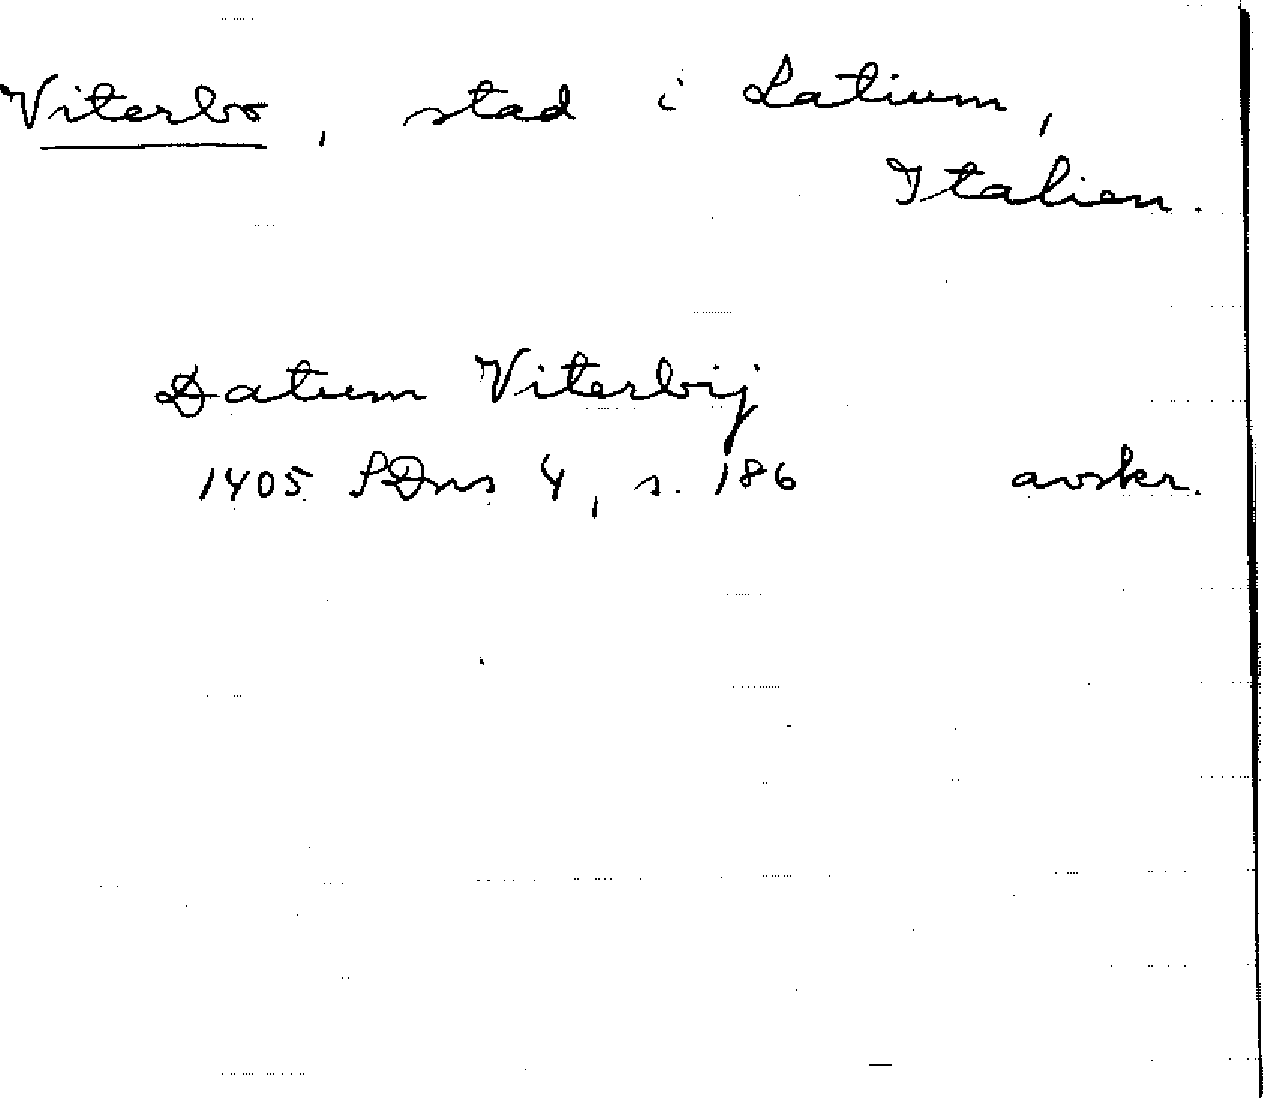 Viterbo, stad i Latium,
Italien.
Datum Viterbij
1405 SDns 4, s. 186 avskr.